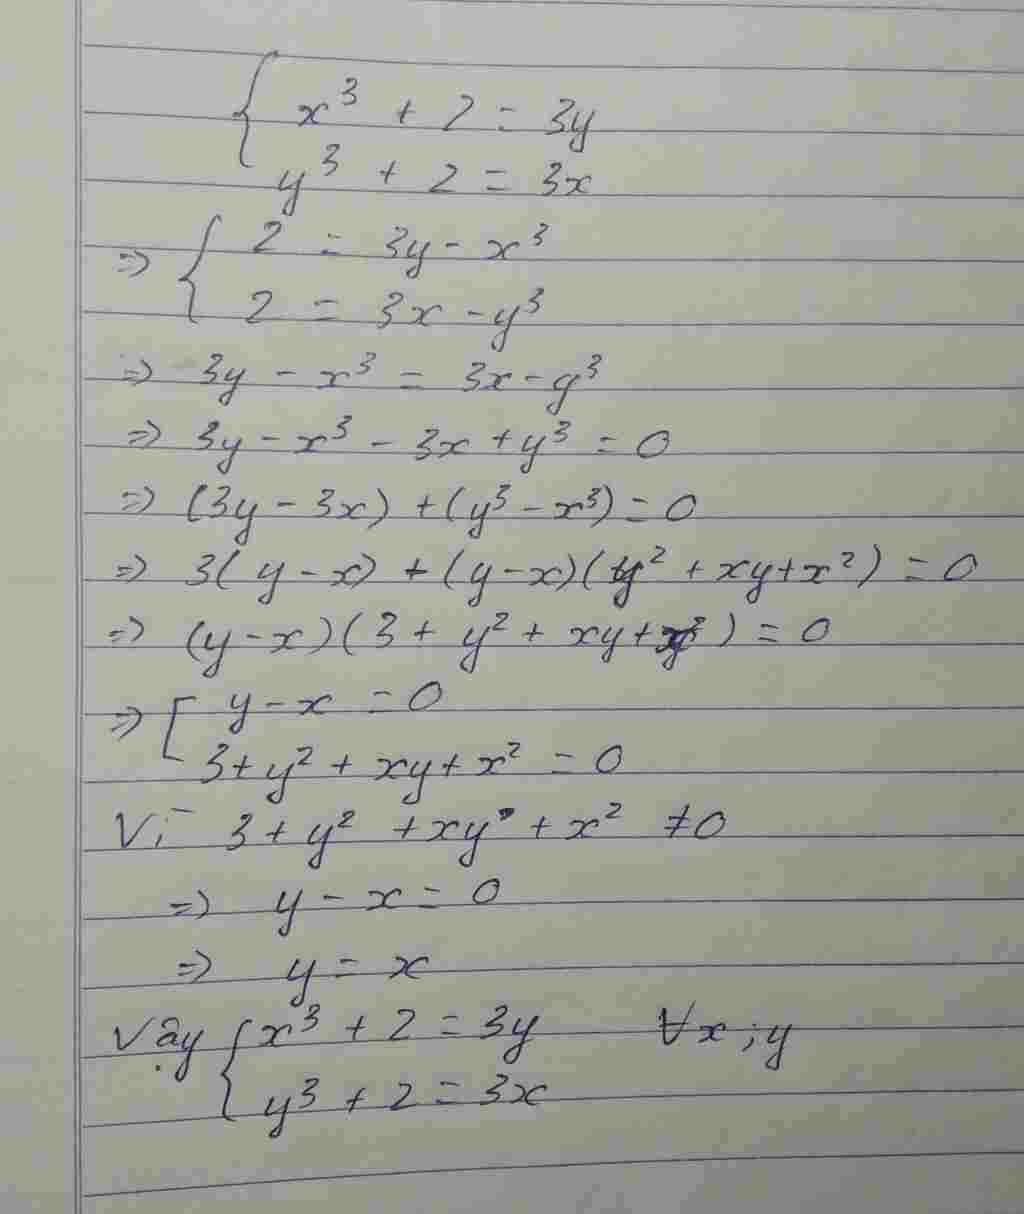 { x³ + 2 = 3y
y³ + 2 = 3x
=> { 2 = 3y - x³
2 = 3x - y³
=> 3y - x³ = 3x - y³
=> 3y - x³ - 3x + y³ = 0
=> (3y - 3x) + (y³ - x³) = 0
=> 3(y - x) + (y - x)(y² + xy + x²) = 0
=> (y - x)(3 + y² + xy + x²) = 0
=> [ y - x = 0
3 + y² + xy + x² = 0
Vì 3 + y² + xy + x² ≠ 0
=> y - x = 0
=> y = x
Vậy { x³ + 2 = 3y ∀x ; y
y³ + 2 = 3x